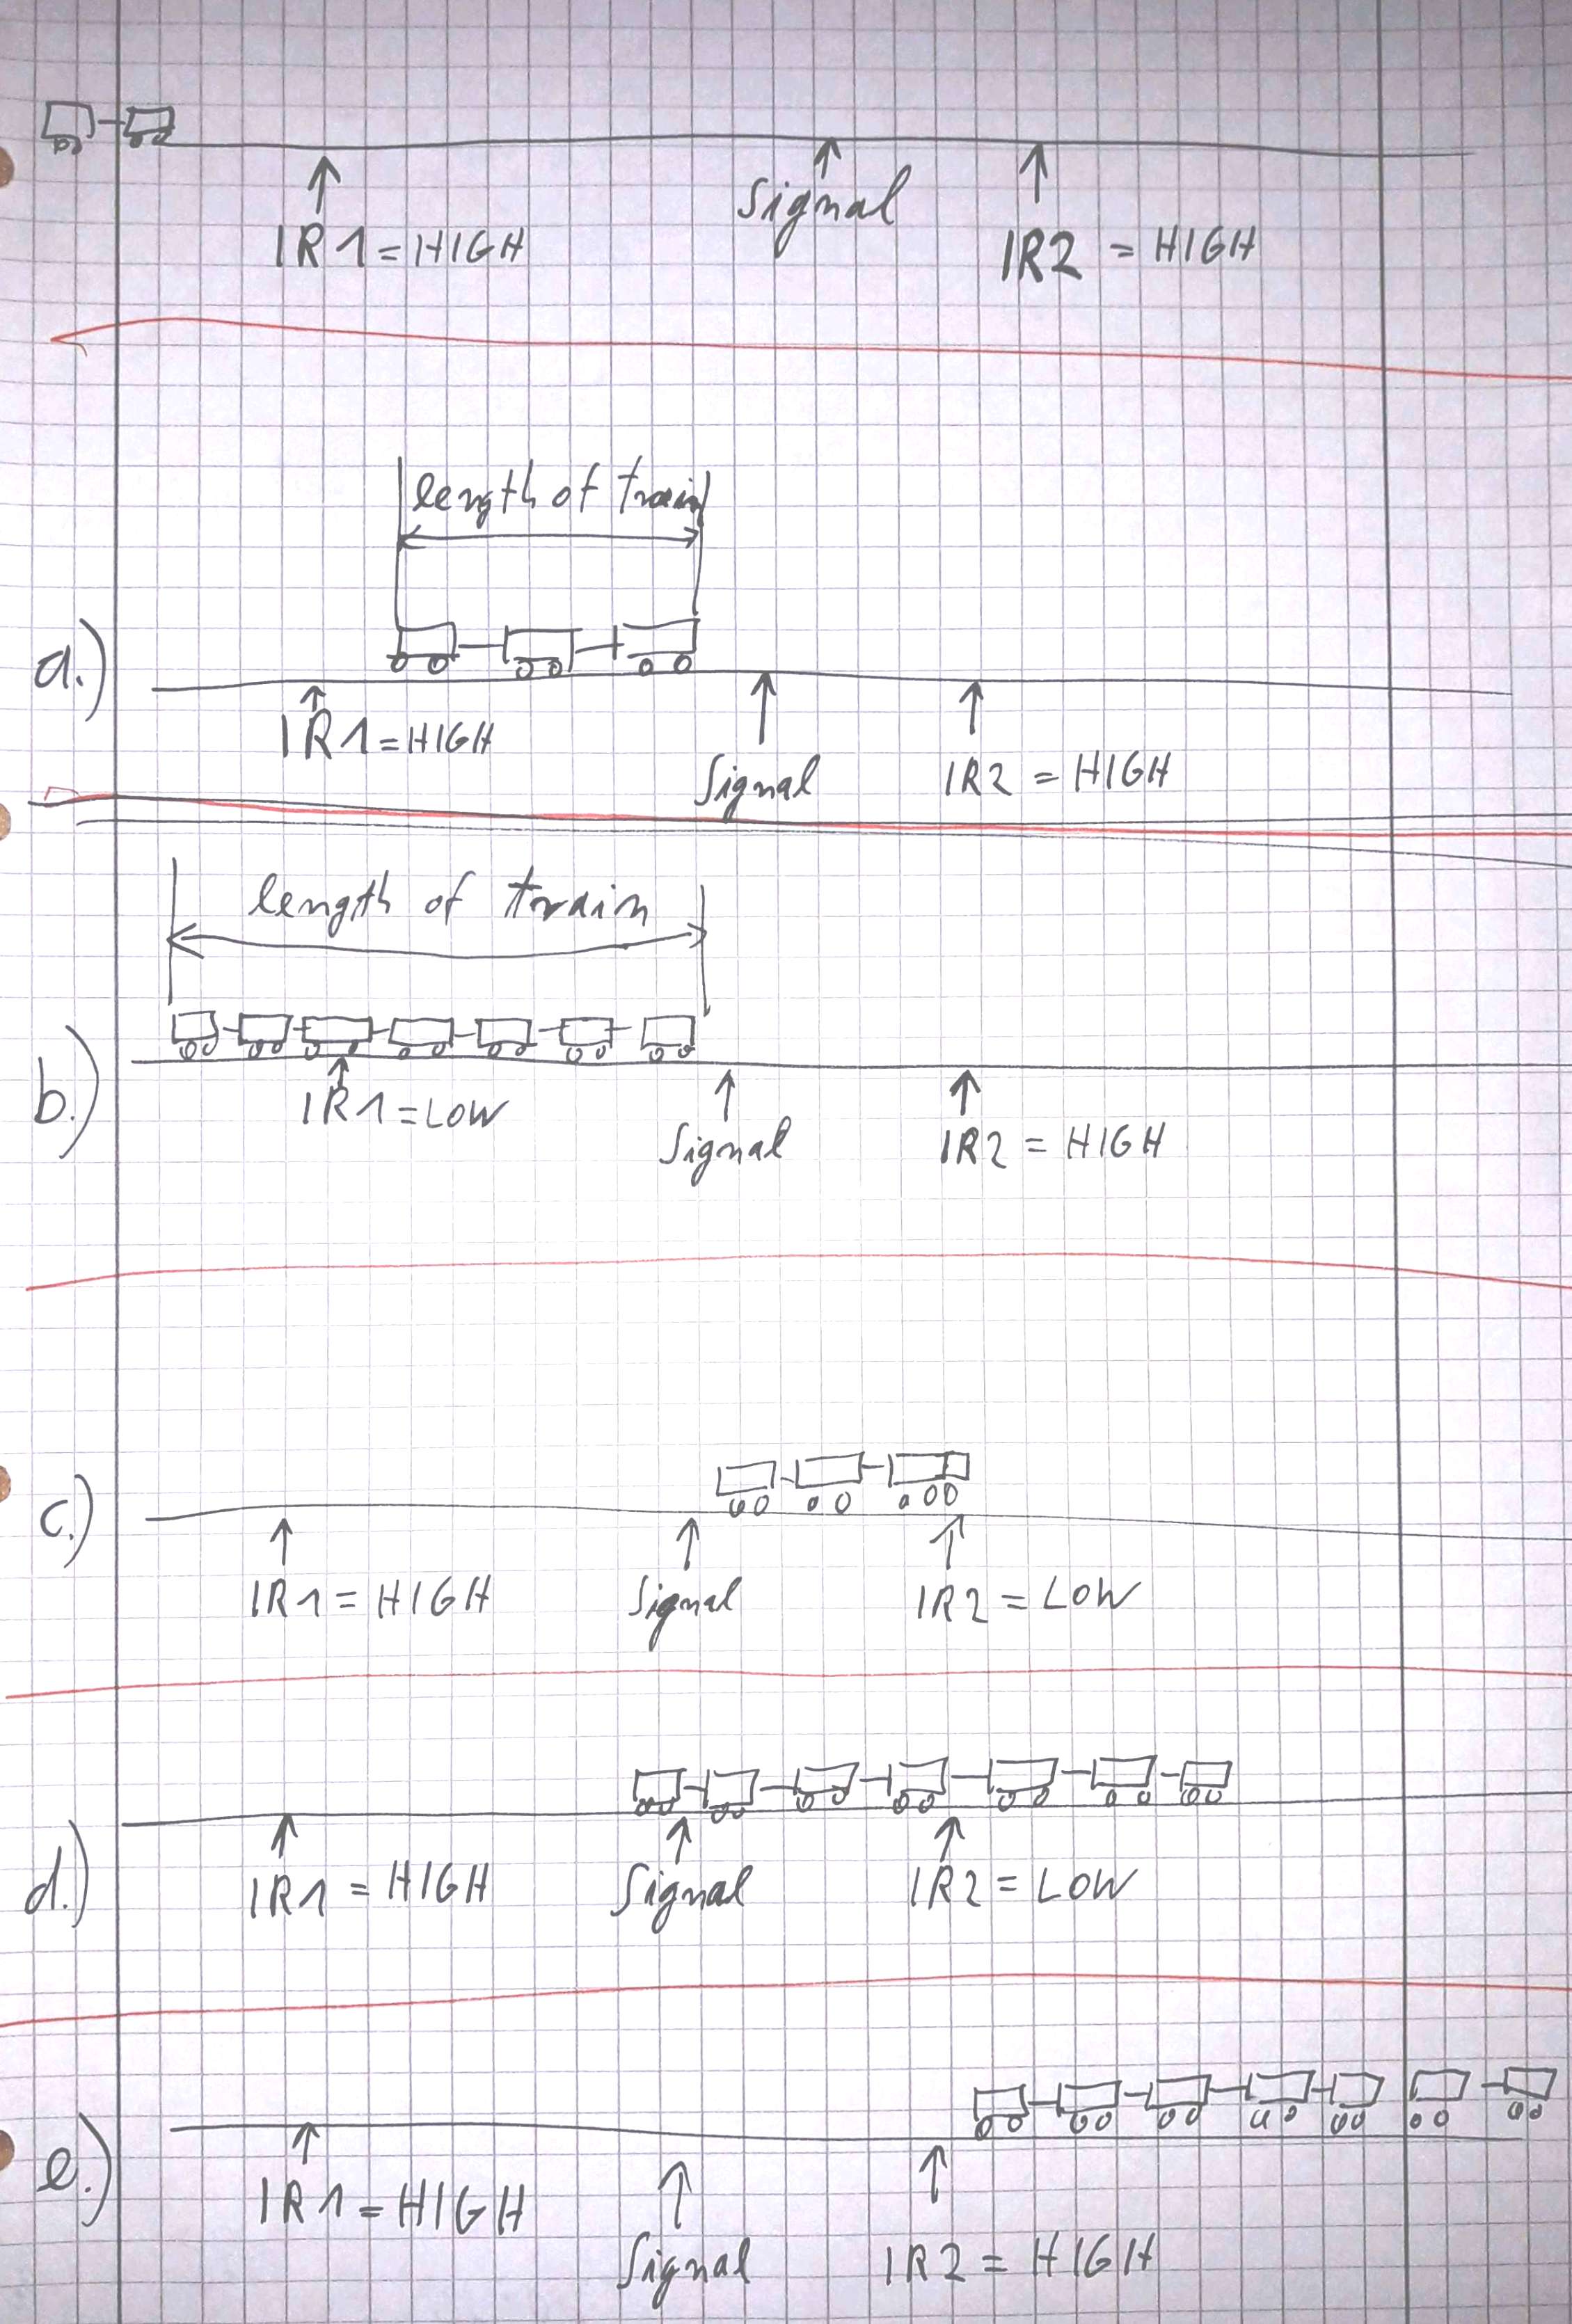 Signal
IR1 = HIGH
IR2 = HIGH
length of train
a.)
IR1 = HIGH
Signal
IR2 = HIGH
length of train
b.)
IR1 = LOW
Signal
IR2 = HIGH
c.)
IR1 = HIGH
Signal
IR2 = LOW
d.)
IR1 = HIGH
Signal
IR2 = LOW
e.)
IR1 = HIGH
Signal
IR2 = HIGH